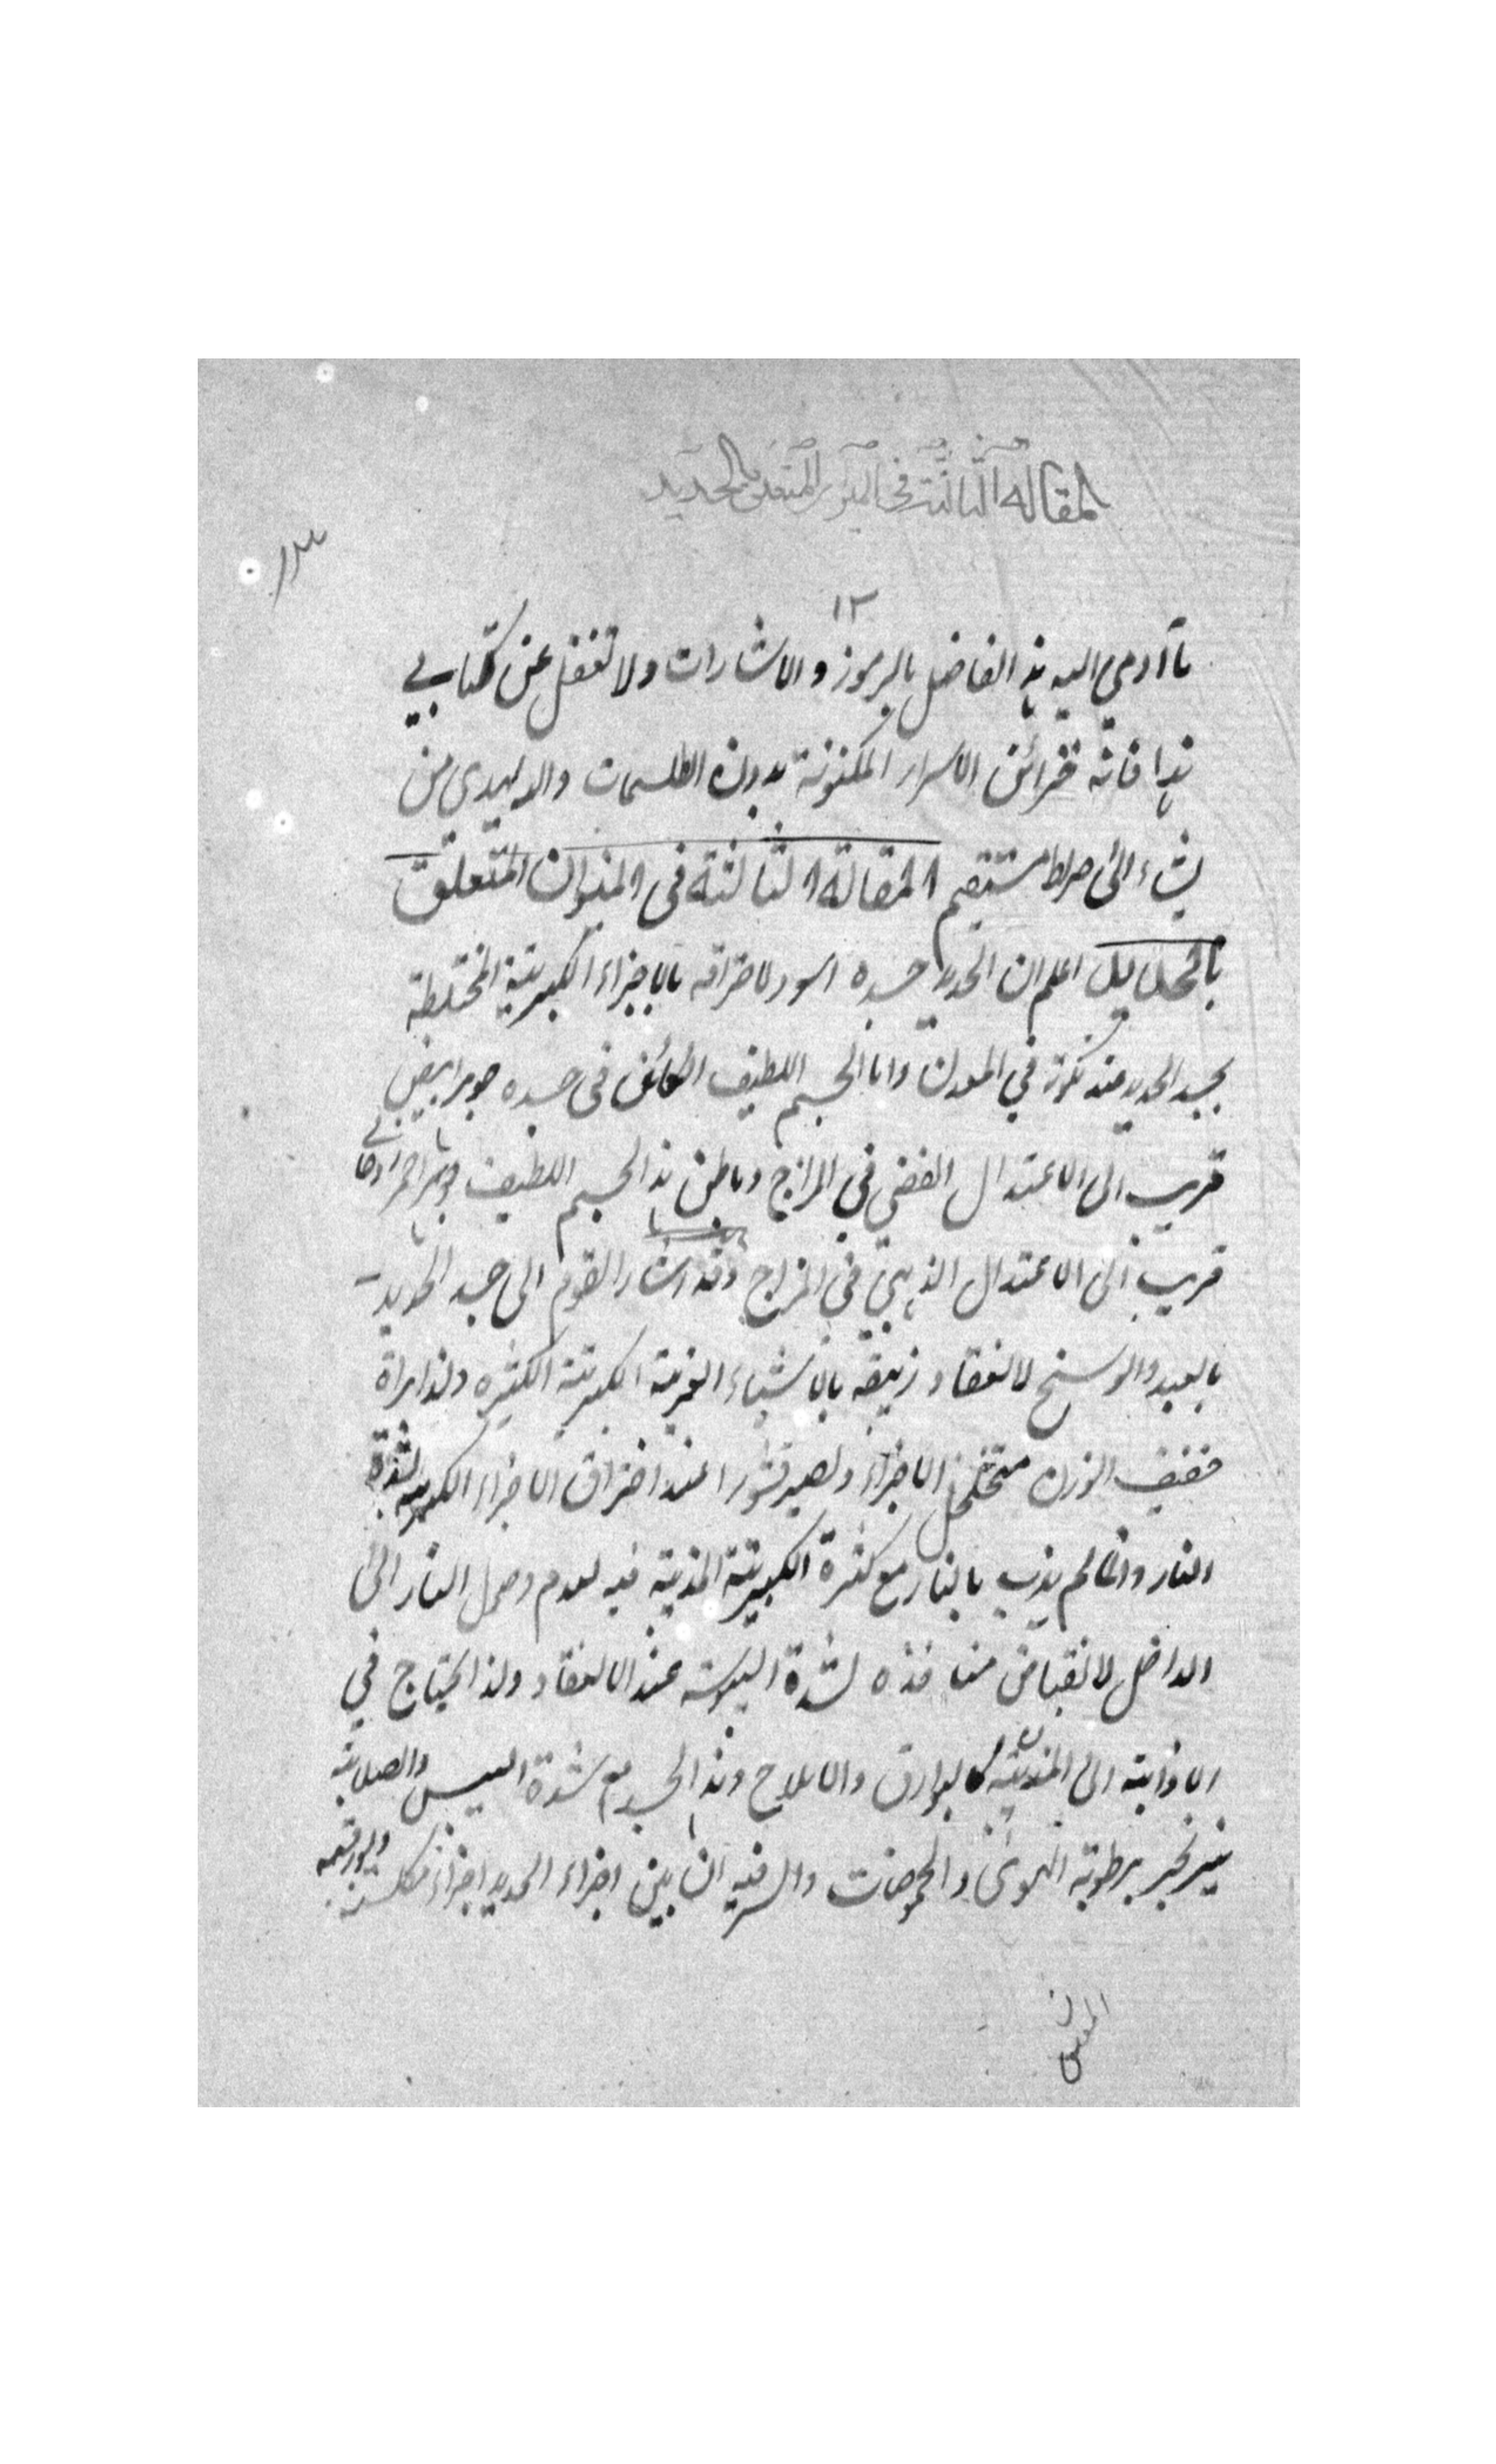 المقالة الثالثة في الميزان المتعلق بالحديد
١٣
١٢
ما أومى اليه هذا الفاضل بالرموز والاشارات ولا تغفل عن كتابي
هذا فانه خزائن الاسرار المكنونة بدون الطلسمات والله يهدي من
يشاء الى صراط مستقيم المقالة الثالثة في الميزان المتعلق
بالحديد اعلم ان الحديد جسده اسود لاحتراقه بالاجزاء الكبريتية المختلطة
بجسد الحديد عند تكونه في المعدن واما الجسم اللطيف الكائن في جسده جوهر ابيض
قريب الى الاعتدال الفضي في المزاج وباطن هذا الجسم اللطيف جوهر احمر روحاني
قريب الى الاعتدال الذهبي في المزاج وقد اشار القوم الى جسد الحديد
بالعبد والوسخ لانعقاد زيبقه بالاشياء الغريبة الكبريتية الكثيره ولذا تراه
خفيف الوزن متخلخل الاجزاء ويصير قشورا عند احتراق الاجزاء الكبريتية لشدة
النار وانما لم يذب بالنار مع كثرة الكبريتية المذيبة فيه لعدم وصول النار الى
الداخل لانقباض منافذه لشدة اليبوسة عند الانعقاد ولذا يحتاج في
الاذابة الى كالبوارق والاملاح وهذا الجسد مع شدة اليبس والصلابة
يتزنجر برطوبة الهواء والحموضات والسر فيه ان بين اجزاء الحديد اجزاء